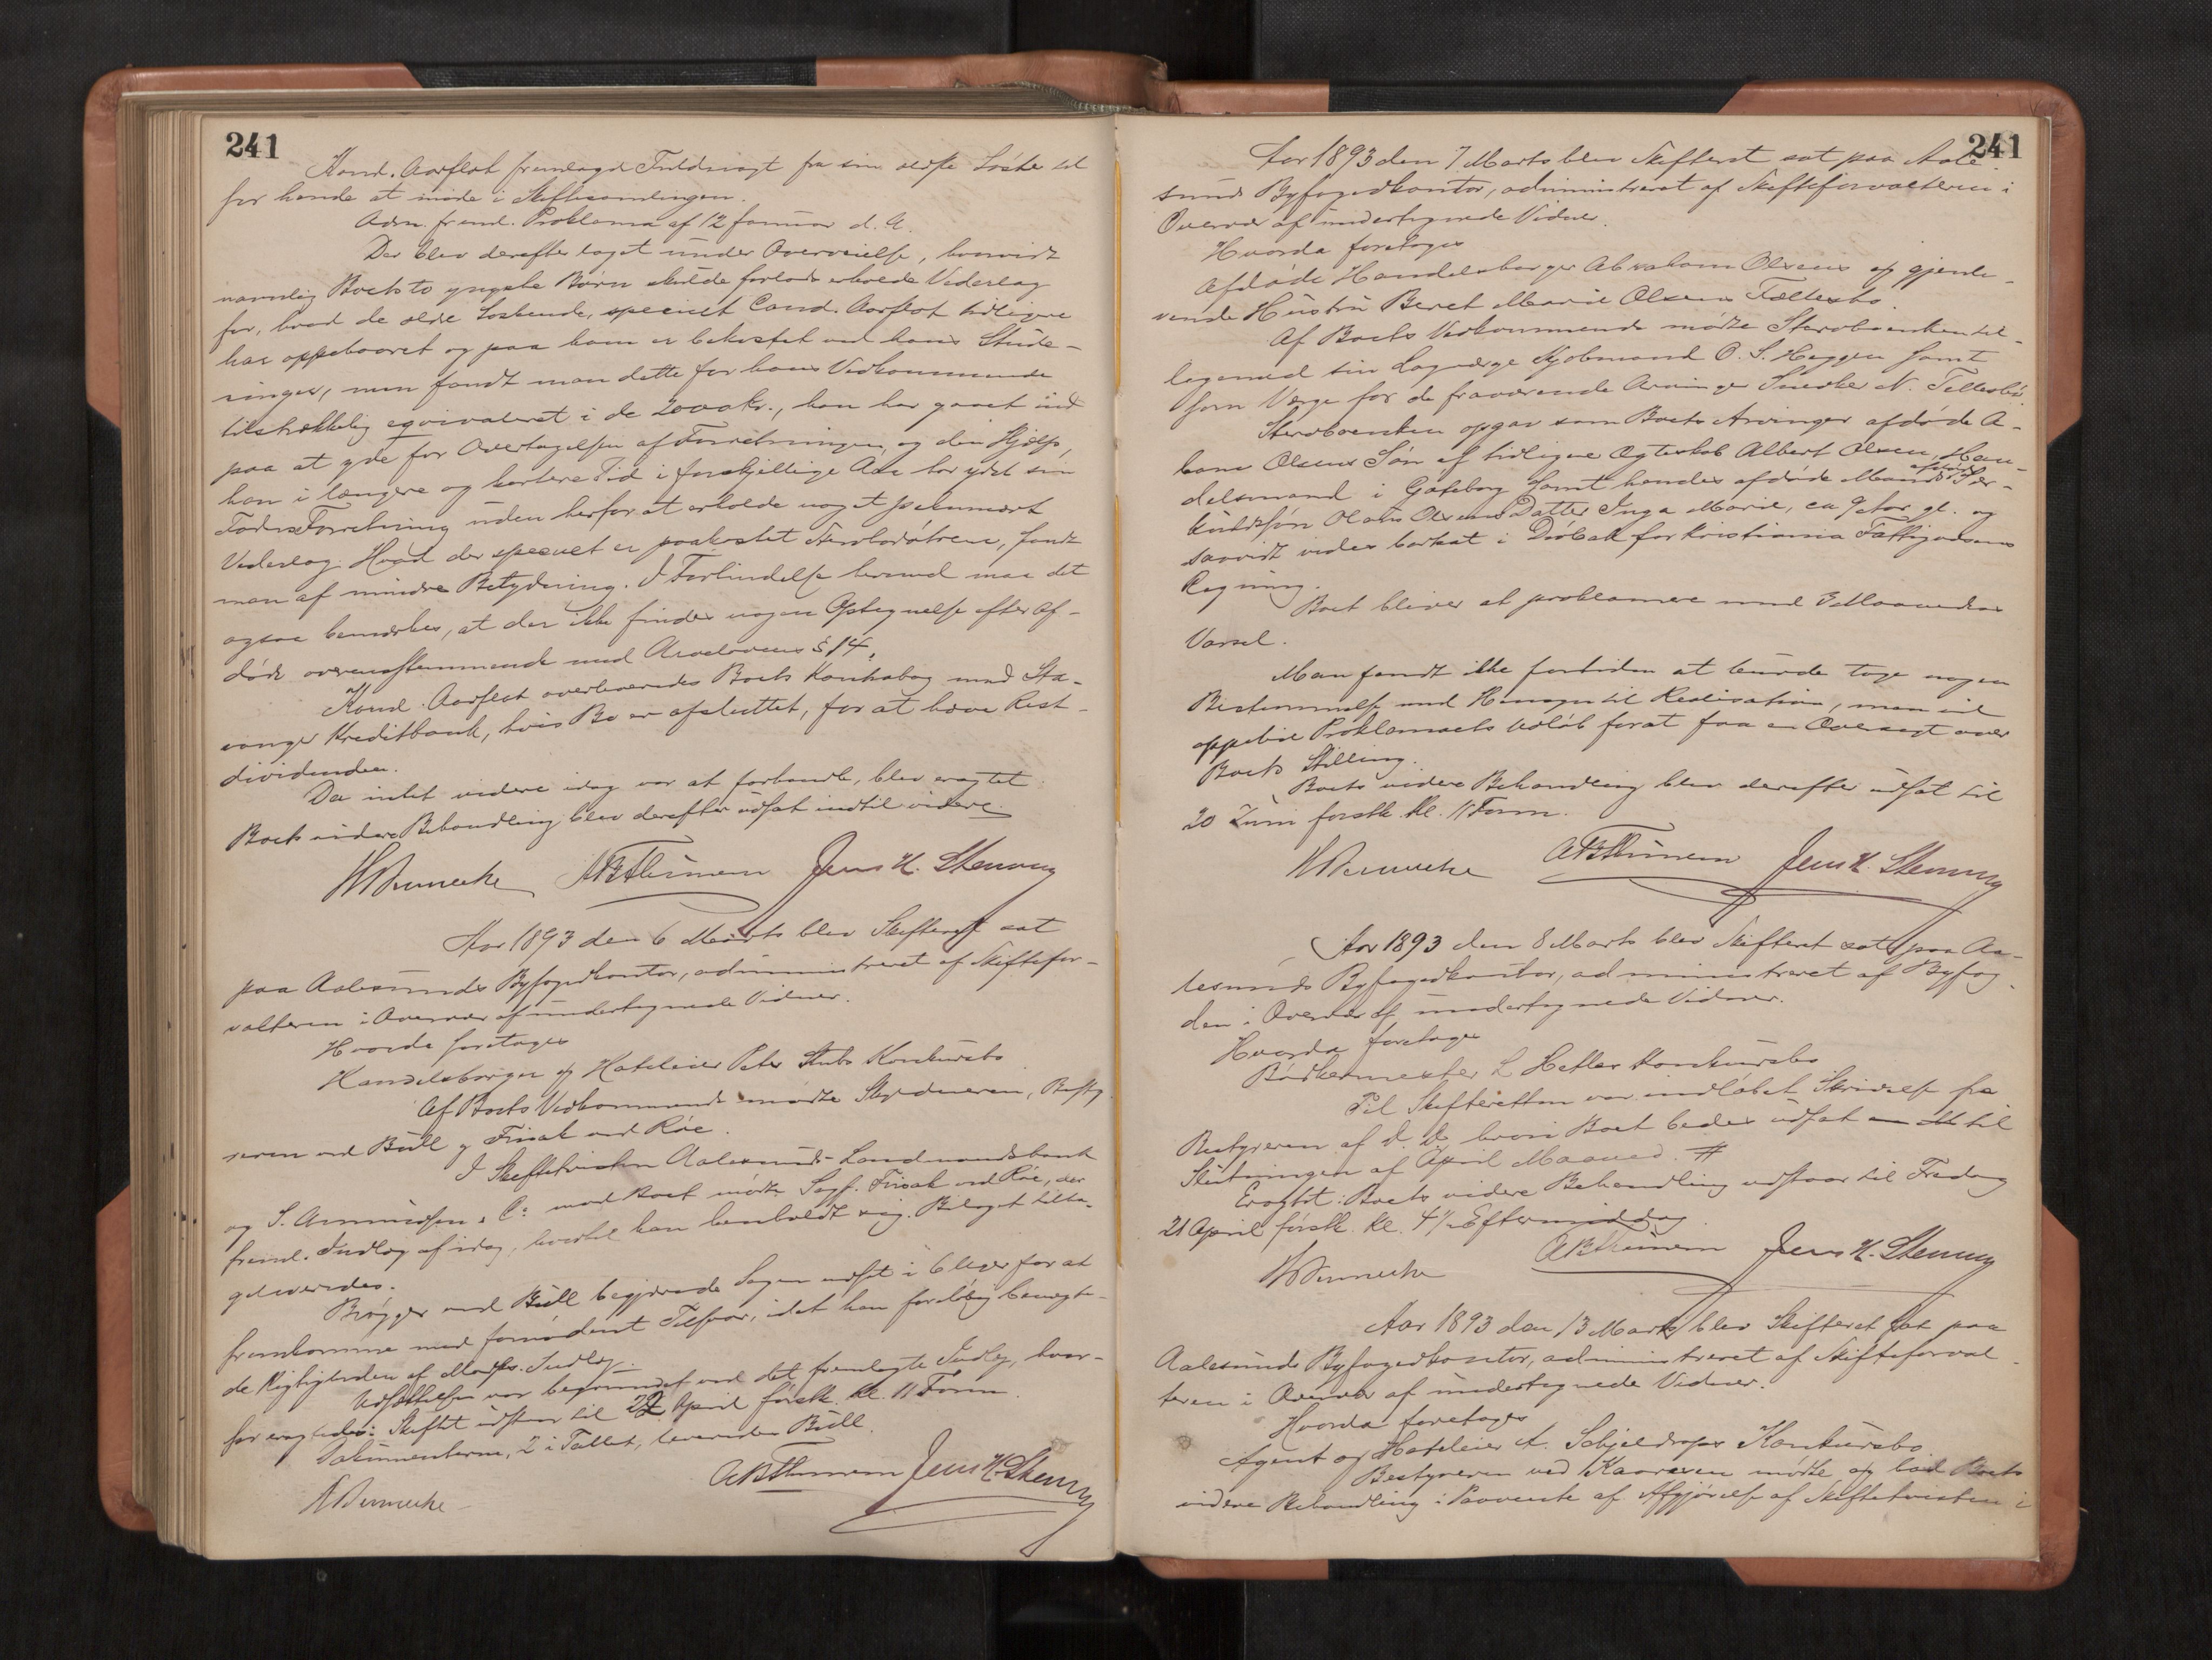 241
Kand. Aarflot fremlagde Fuldmagt fra sin ældste Søster til
for hende at møde i Skiftesamlingen.
Adm. freml. Proklama af 12 Januar d. A.
Der blev derefter taget under Overveielse, hvorvidt
navnlig Boets to yngste Børn skulde forlods erholde Vederlag
for, hvad de ældre Søskende, specielt Cand. Aarflot tidligere
har oppebaaret og paa ham er bekostet ved hans Stude-
ringer, men fandt man dette for hans Vedkommende
tilstrækkelig eqvivaleret i de 2000 kr., han har gaaet ind
paa at yde for Overtagelsen af Forretningen og den Hjælp,
han i længere og kortere Tid i forskjellige Aar har ydet sin
Faders Forretning uden herfor at erholde noget pekuniært
Vederlag. Hvad der specielt er paakostet Sterbdøtrene, fandt
man af mindre Betydning. I Forbindelse hermed maa det
ogsaa bemærkes, at der ikke findes nogen Optegnelse efter Af-
døde overensstemmende med Arvelovens § 14.
Kand. Aarflot overleveredes Boets Kontrabog med Sta-
vanger Kreditbank, hvis Bo er afsluttet, for at hæve Rest-
dividenden.
Da intet videre idag var at forhandle, blev eragtet
Boets videre Behandling blev derefter udsat indtil videre.
WBennecke A B Thunem Jens H. Stenning
Aar 1893 den 6 Marts blev Skifteret sat
paa Aalesunds Byfogedkontor, administreret af Skiftefor-
valteren i Overvær af undertegnede Vidner.
Hvorda foretoges
Handelsborger og Hoteleier Peter Stubs Konkursbo
Af Boets Vedkommende mødte Skyldneren, Besty-
reren ved Bull og Finsak ved Røe.
I Skiftetvisten Aalesunds Landmandsbank
og S. Amundsen & Co mod Boet mødte Sagf. Finsak ved Røe, der
freml. Indlæg af idag, hvortil han henholdt sig. Bilaget tilba-
geleveredes.
Brøgger med Bull begjærede Sagen udsat i 6 Uger for at
fremkomme med fornødent Tilsvar, idet han foreløbig benægte-
de Rigtigheden af Modp. Indlæg.
Udsættelsen var begrundet ved det fremlagte Indlæg, hvor-
for eragtedes: Skiftet udstaar til 22 April førstk. Kl. 11 Form.
Dokumenterne, 2 i Tallet, leveredes Bull.
WBennecke A B Thunem Jens H Stenning
241
Aar 1893 den 7 Marts blev Skifteret sat paa Aale-
sunds Byfogedkontor, administreret af Skifteforvalteren i
Overvær af undertegnede Vidner.
Hvorda foretoges
Afdøde Handelsborger Abraham Olsens og gjenle-
vende Hustru Beret Marie Olsens Fællesbo.
Af Boets Vedkommende mødte Sterboenken til-
ligemed sin Lagværge Kjøbmand O. S. Heggen samt
som Værge for de fraværende Arvinger Snedker N. Tellesbø.
Sterboenken opgav som Boets Arvinger afdøde A-
hams Olsens Søn af tidligere Ægteskab Albert Olsen, Han-
delsmand i Gøteborg samt hendes afdøde Mands afdøde Sær-
kuldssøn Olaus Olsens Datter Inga Marie, ca 9 Aar gl. og
saavidt vides bortsat i Drøbak for Kristiania Fattigvæsens
Regning.
Boet bliver at proklamere med 3 Maaneders
Varsel.
Man fandt ikke fortiden at burde tage nogen
Bestemmelse med Hensyn til Realisation, men vil
oppebie Proklamaets Udløb forat faa en Oversigt over
Boets Stilling.
Boets videre Behandling blev derefter udsat til
20 Juni førstk. Kl. 11 Form.
WBennecke A B Thunem Jens H. Stenning
Aar 1893 den 8 Marts blev Skifteret sat paa Aa-
lesunds Byfogedkontor, administreret af Byfog-
den i Overvær af undertegnede Vidner.
Hvorda foretoges
Bødkermester L Hetles Konkursbo
Til Skifteretten var indløbet Skrivelse fra
Bestyreren af d. D., hvori Boet bedes udsat til
Slutningen af April Maaned. #
Eragtet: Boets videre Behandling udstaar til Fredag
21 April førstk. Kl. 4 1/2 Eftermiddag.
WBennecke A B Thunem Jens H. Stenning
Aar 1893 den 13 Marts blev Skifteret sat paa
Aalesunds Byfogedkontor, administreret af Skifteforval-
teren i Overvær af undertegnede Vidner.
Hvorda foretoges
Agent og Hoteleier A. Schjelderups Konkursbo.
Bestyreren ved Kaaresen mødte og bad Boets
videre Behandling i Paavente af Afgjørelse af Skiftetvisten i